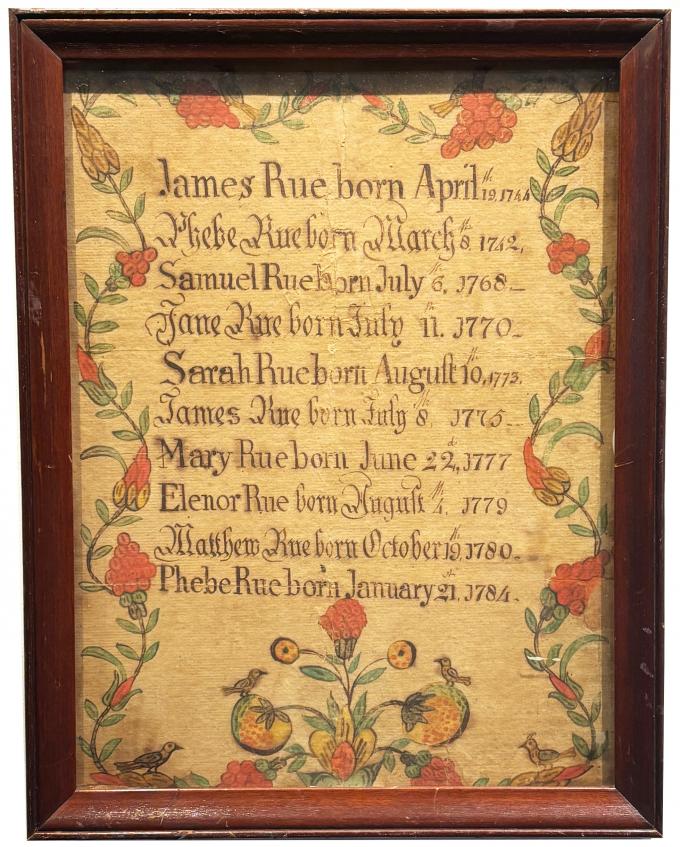 James Rue born April 19.th 1744
Phebe Rue born March 8th 1742.
Samuel Rue born July 6th. 1768
Jane Rue born July 11.th 1770
Sarah Rue born August 10.th 1773.
James Rue born July 8th. 1775
Mary Rue born June 22d. 1777
Elenor Rue born August 4th. 1779
Matthew Rue born October 19th. 1780
Phebe Rue born January 21st. 1784